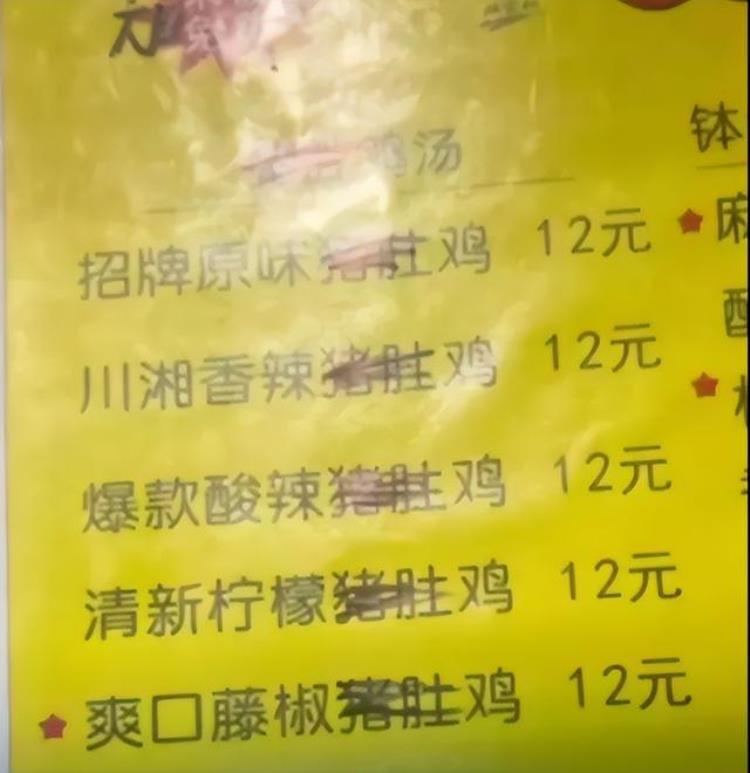 鸡汤
招牌原味猪肚鸡 12元
川湘香辣猪肚鸡 12元
爆款酸辣猪肚鸡 12元
清新柠檬猪肚鸡 12元
爽口藤椒猪肚鸡 12元
钵
麻